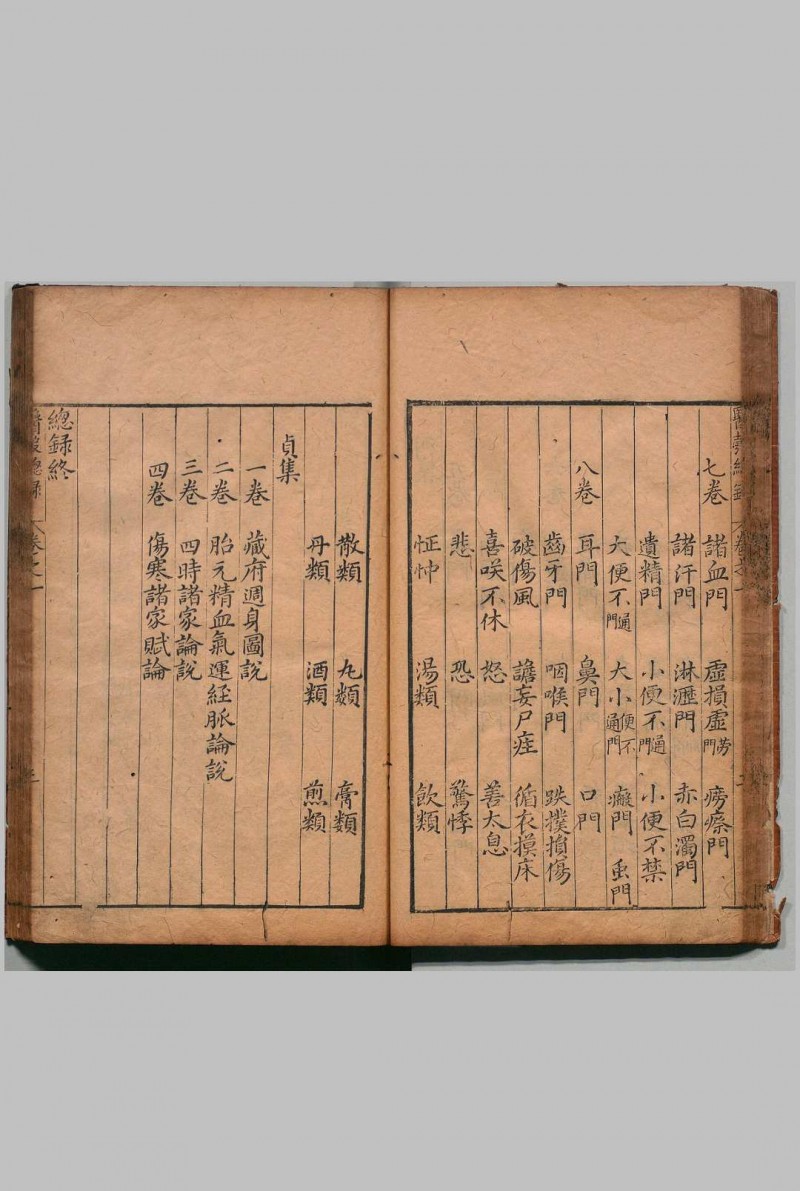 七卷 諸血門 虛損虛勞門 癆瘵門
諸汗門 淋瀝門 赤白濁門
遺精門 小便不通門 小便不禁
大便不通門 大小便不通門 癥門 虫門
八卷 耳門 鼻門 口門
齒牙門 咽喉門 跌撲損傷
破傷風 譫妄尸疰 循衣摸床
喜咲不休 怒 善太息
悲 恐 驚悸
怔忡 湯類 飲類
散類 丸類 膏類
丹類 酒類 煎類
貞集
一卷 藏府週身圖說
二卷 胎元精血氣運経脈論說
三卷 四時諸家論說
四卷 傷寒諸家賦論
總録終
總録 卷之一